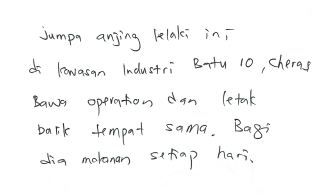 Jumpa anjing lelaki ini
di kawasan Industri Batu 10, Cheras
Bawa operation dan letak
balik tempat sama. Bagi
dia makanan setiap hari.